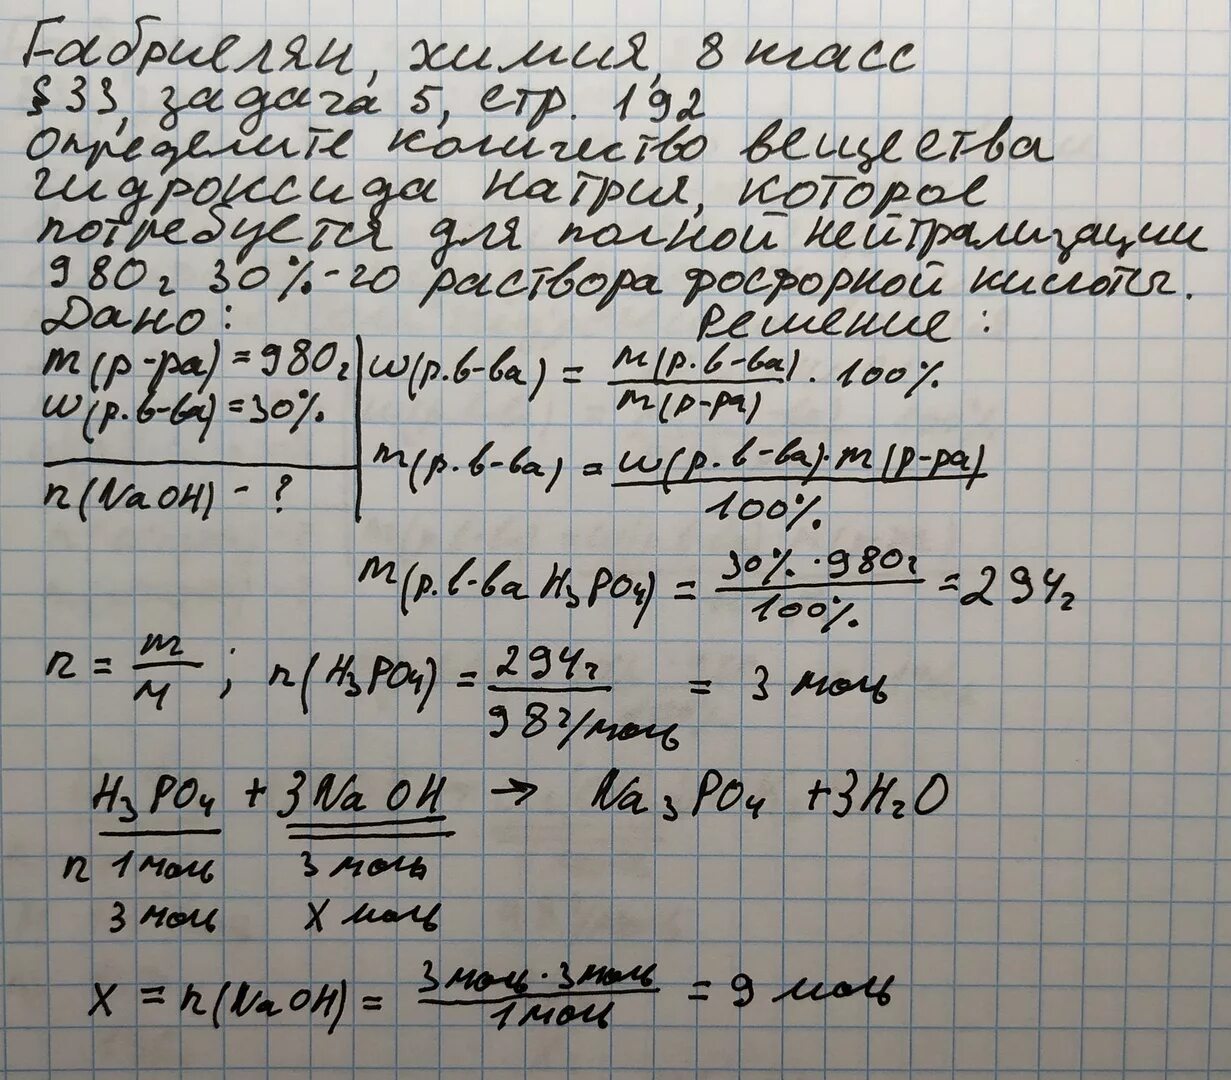 Габриелян, химия, 8 класс
§33, задача 5, стр. 192
Определите количество вещества
гидроксида натрия, которое
потребуется для полной нейтрализации
980г 30%-го раствора фосфорной кислоты.
Дано: Решение:
m(р-ра)=980г w(р.в-ва) = m(р.в-ва)/m(р-ра) · 100%
w(р.в-ва)=30%
m(р.в-ва) = w(р.в-ва)·m(р-ра)/100%
n(NaOH) - ?
m(р.в-ва H₃PO₄) = 30%·980г/100% = 294г
n = m/M ; n(H₃PO₄) = 294г/98г/моль = 3 моль
H₃PO₄ + 3NaOH → Na₃PO₄ + 3H₂O
n 1моль 3 моль
3 моль x моль
x = n(NaOH) = 3моль·3моль/1моль = 9 моль